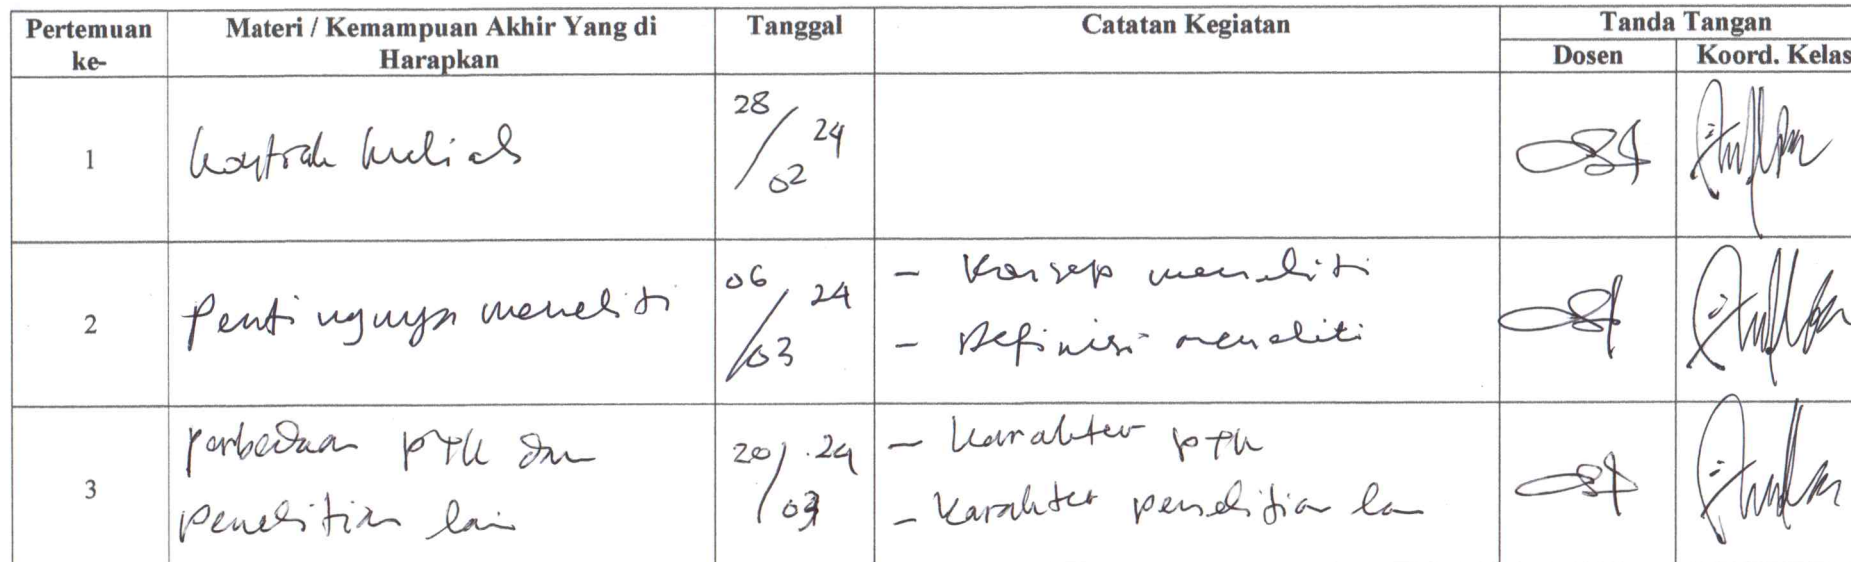 Pertemuan ke-
Materi / Kemampuan Akhir Yang di Harapkan
Tanggal
Catatan Kegiatan
Tanda Tangan
Dosen
Koord. Kelas
1
Kontrak kuliah
28/02 24
2
Pentingnya meneliti
06/03 24
- Konsep meneliti
- Definisi meneliti
3
Perbedaan PTK dan
penelitian lain
20/03 24
- Karakter PTK
- Karakter penelitian lain